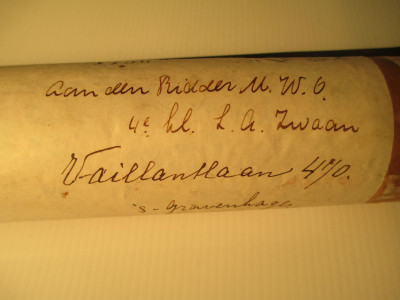 Aan den Ridder M. W. O.
4e kl. L. A. Zwaan
Vaillantlaan 470.
's-Gravenhage